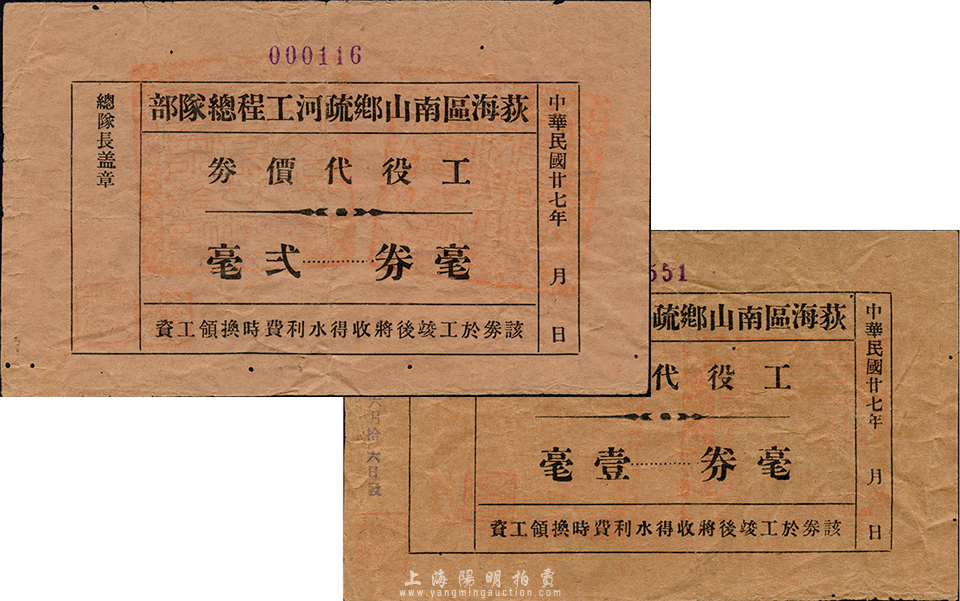 000116
中華民國廿七年　月　日
荻海區南山鄉疏河工程總隊部
工役代價券
毫券…………弍毫
該券於工竣後將收得水利費時換領工資
總隊長盖章
551
中華民國廿七年　月　日
荻海區南山鄉疏
工役代
毫券…………壹毫
該券於工竣後將收得水利費時換領工資
月拾六日發
上海陽明拍賣
www.yangmingauction.com